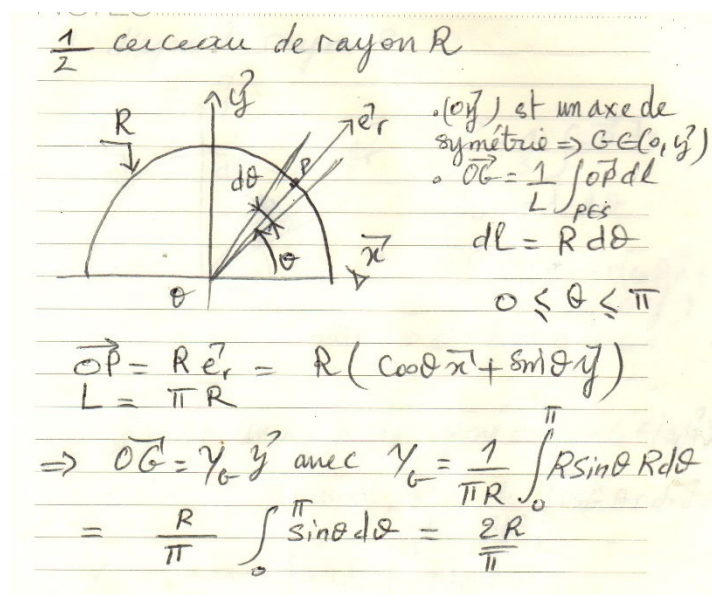 1/2 cerceau de rayon R
y⃗
R
e⃗r
P
dθ
θ
x⃗
O
. (oy⃗) est un axe de
symétrie => G∈(o, y⃗)
. OG⃗ = 1/L ∫P∈S OP⃗ dl
dl = R dθ
0 ≤ θ ≤ π
OP⃗ = R e⃗r = R ( cosθ x⃗ + sinθ y⃗ )
L = π R
=> OG⃗ = YG y⃗ avec YG = 1/πR ∫0^π R sinθ R dθ
= R/π ∫0^π sinθ dθ = 2R/π